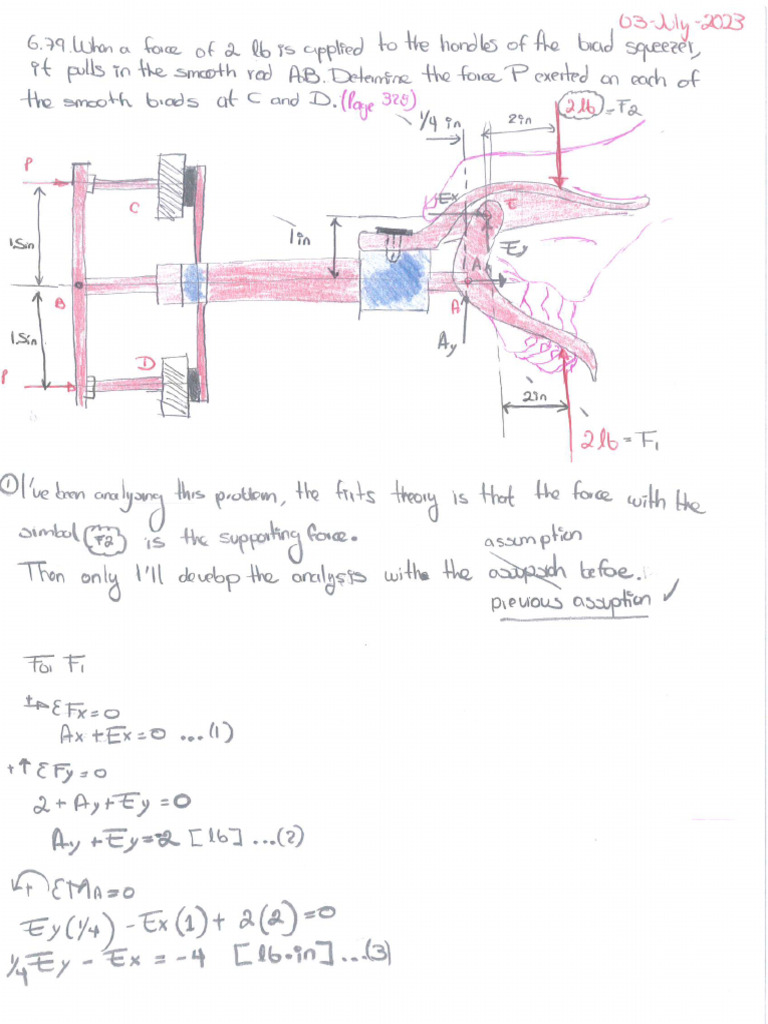 03-July-2023
6.79. When a force of 2 lb is applied to the handles of the brad squeezer,
it pulls in the smooth rod AB. Determine the force P exerted on each of
the smooth brads at C and D. (Page 325)
1/4 in
2in
2lb = F2
P
Ex
E
C
1.5in
1in
Ey
A
B
A
1.5in
Ay
D
P
2in
2lb = F1
① I've been analysing this problem, the firts theory is that the force with the
simbol F2 is the supporting force.
assumption
Then only I'll develop the analysis with the before.
previous assuption ✓
For F1
±→ ΣFx=0
Ax+Ex=0 ...(1)
+↑ ΣFy=0
2+Ay+Ey=0
Ay+Ey=-2 [lb] ...(2)
+ ΣMA=0
Ey(1/4) - Ex(1) + 2(2)=0
1/4 Ey - Ex = -4 [lb•in] ...(3)